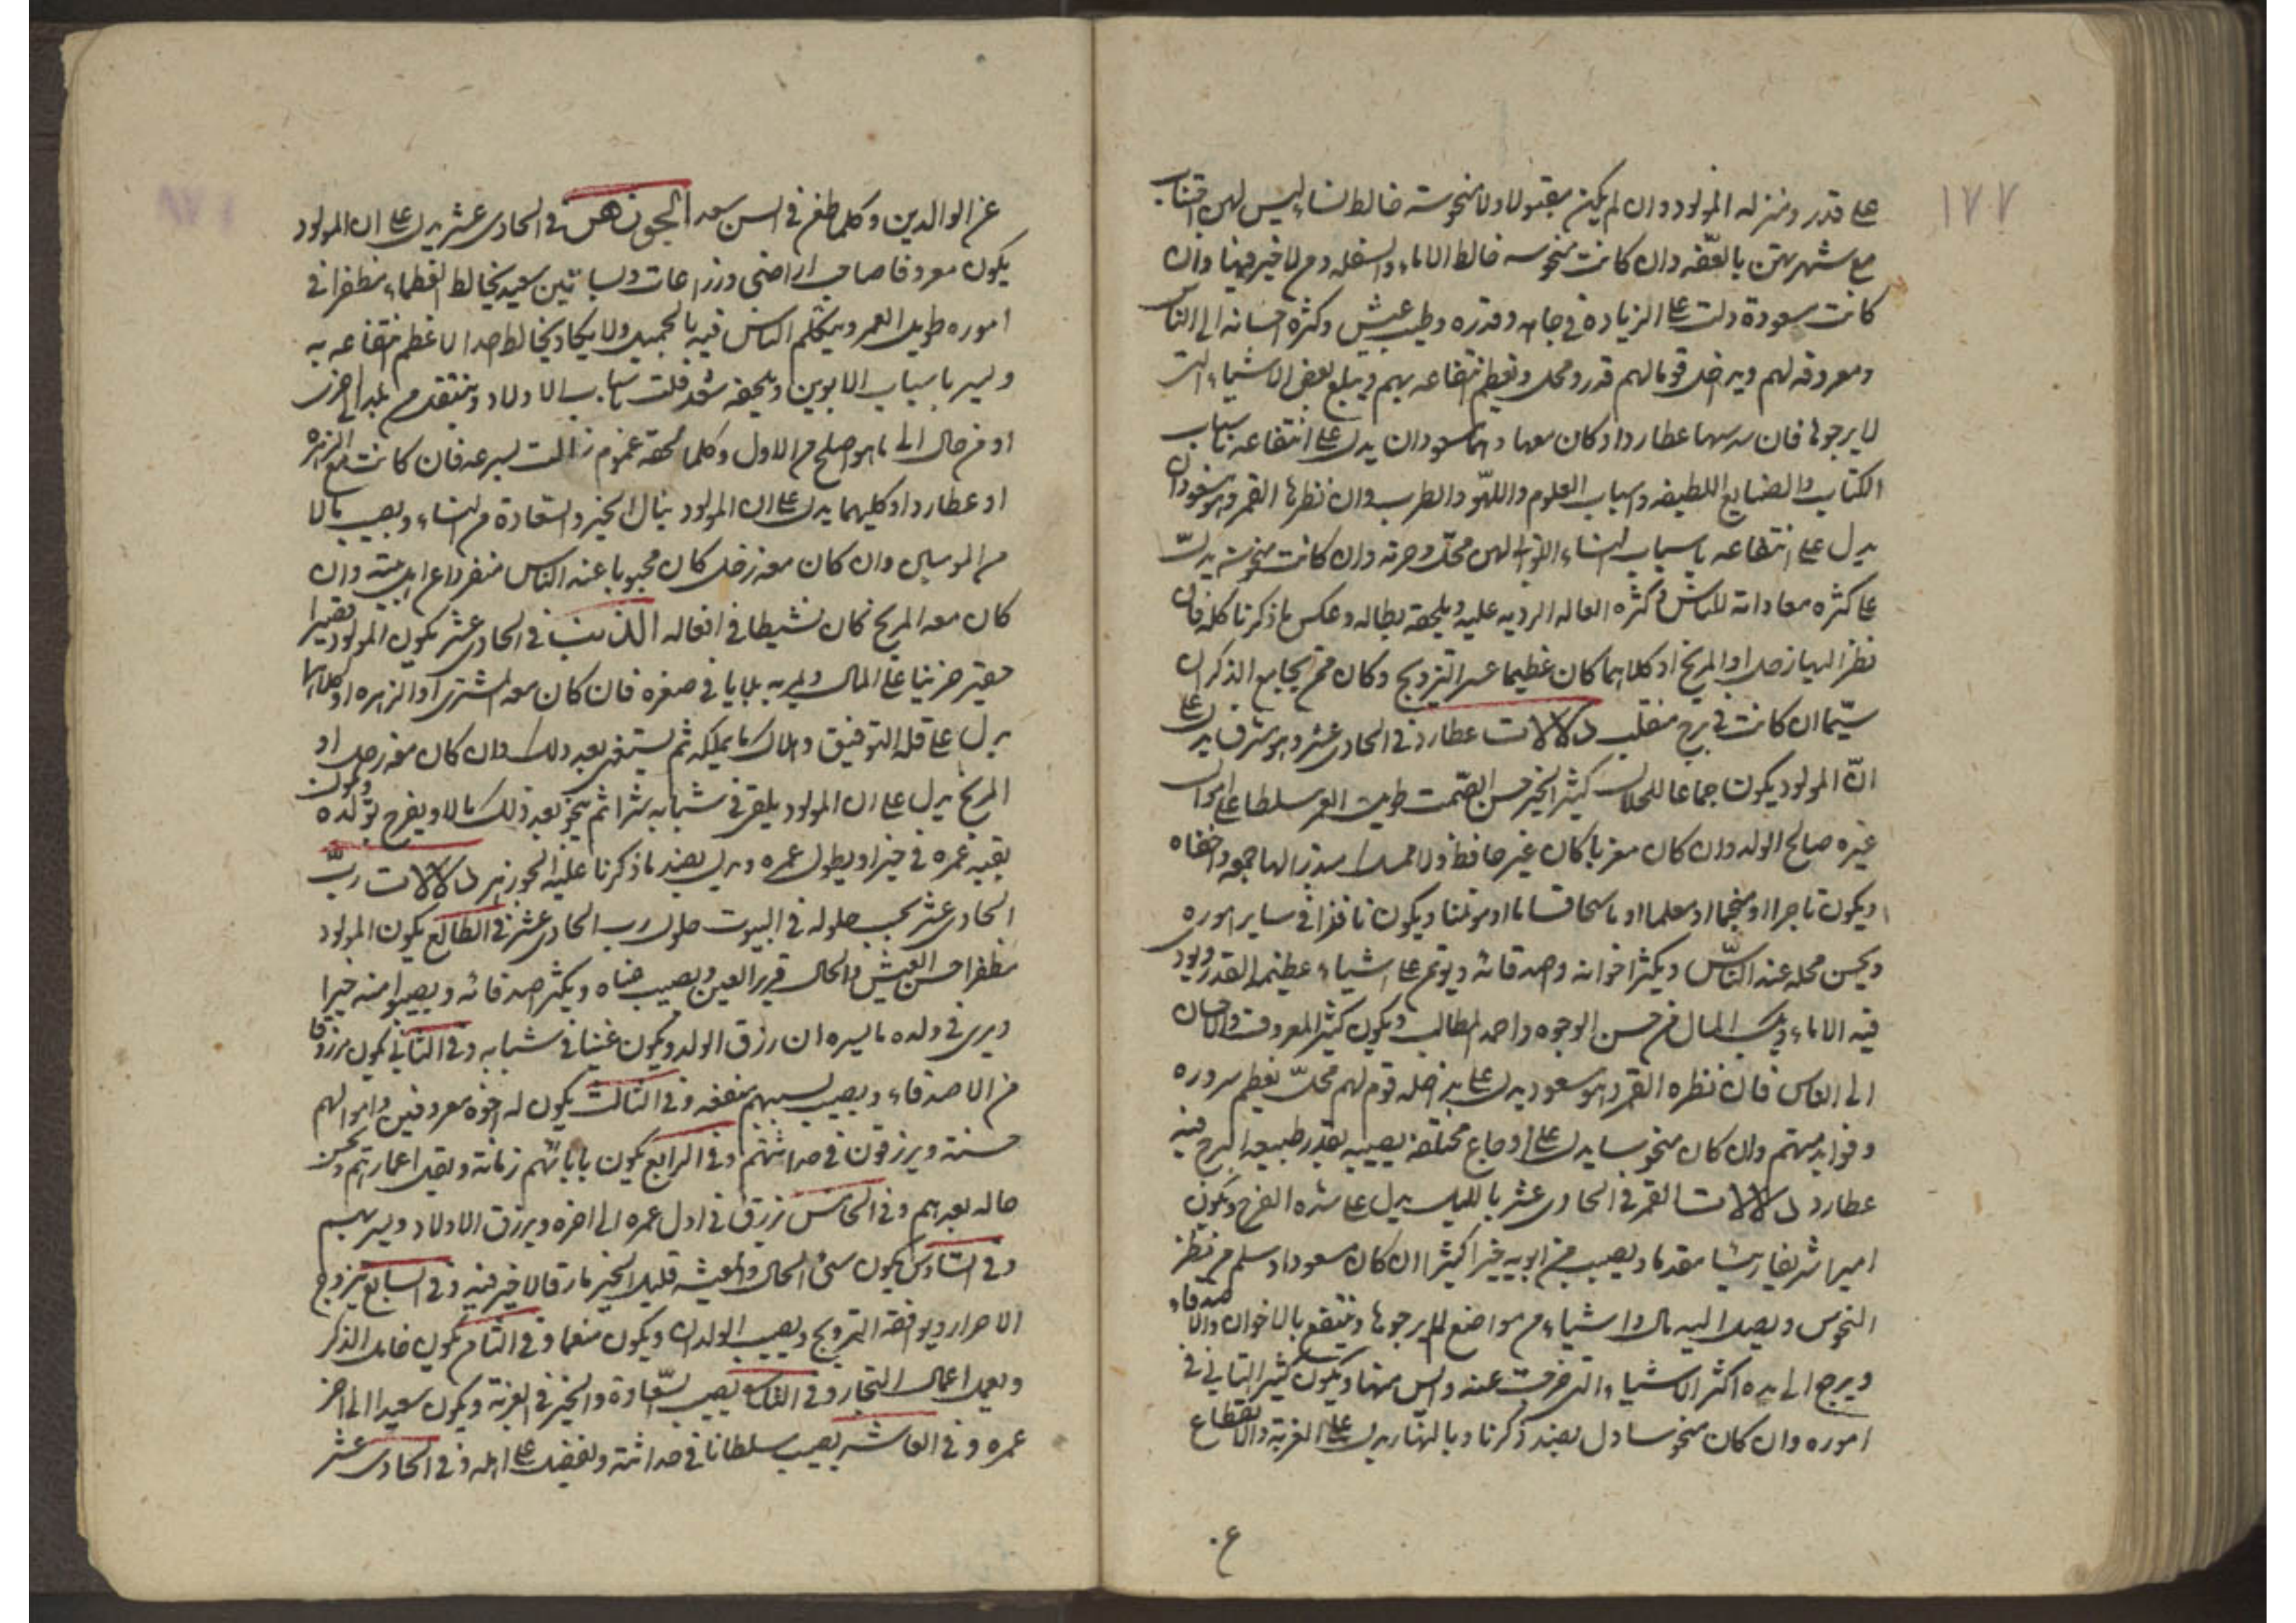 ١٧٧
على قدر ومنزله المولود وان لم يكن مقبولا ولا منحوسة خالط النساء ليس لهن اقتناب
مع شهرتهن بالعفه وان كانت منحوسه خالط الاماء والسفله ومن لا خير فيها وان
كانت مسعودة دلت على الزيادة في جاهه وقدره وطيب عيش وكثره احسانه الى الناس
ومعروفه لهم ويداخل قوما لهم قدر ومحل ويعظم انتفاعه بهم ويبلغ بعض الاشياء التي
لا يرجوها فان سدسها عطارد او كان معها وهما مسعودان يدل على انتفاعه باسباب
الكتاب والصنايع اللطيفه واسباب العلوم واللهو والطرب وان نظرها القمر وهو مسعود
يدل على انتفاعه باسباب النساء اللواتي لهن محل وحرمه وان كانت منحوسة يدل
على كثره معاداته للناس وكثره القاله الرديه عليه ويلحقه بطاله وعكس ما ذكرنا كله فان
نظر اليها زحل او المريخ او كلاهما كان عظيما عسر التزويج وكان ممن يجامع الذكران
سيما ان كانت في برج منقلب دلالات عطارد في الحادى عشر وهو مشرق يدل على
ان المولود يكون جماعا للمال كثير الخير حسن الصمت طويل العمر سلطا على اموال
غيره صالح الولد وان كان مغربا كان غير حافظ ولا ممسك لها جمعه
ويكون تاجرا او منجما او معلما او ويكون نافذا في ساير اموره
ويحسن محله عند الناس ويكثر اخوانه واصدقائه ويوتمن على اشياء عظيم القدر
فيه الاماء المال من حسن الوجوه واحمد المطالب ويكون كثير المعروف والاحسان
الى الناس فان نظره القمر وهو مسعود يدل على مداخله قوم لهم محل يعظم سروره
وفوايد منهم وان كان منحوسا يدل على اوجاع مختلفه يصيبه بقدر طبيعه البرج فيه
عطارد دلالات القمر في الحادى عشر بالليل يدل على شده الفرح ويكون
اميرا شريفا رئيسا مقدما ويصيب من ابويه خيرا كثيرا ان كان مسعودا وسلم من نظر
النحوس ويصل اليه مال واشياء من مواضع لم يرجوها وينتفع بالاخوان والاصدقاء
ويرجع الى يده اكثر الاشياء التي خرجت عنه وايس منها ويكون كثير التاني في
اموره وان كان منحوسا دل بضد ذكرنا وبالنهار يدل على الغربة والانقطاع
ع.
عن الوالدين وكلما طعن في السن سعد الجوزهر في الحادى عشر يدل على ان المولود
يكون معروفا صاحب اراضى وزراعات وبساتين سعيد يخالط العظماء مظفرا في
اموره طويل العمر ويتكلم الناس فيه بالجميل ولا يكاد يخالط احدا الا عظم انتفاعه به
ويسر باسباب الابوين ويلحقه باسباب الاولاد وينتقل من بلد الى اخرى
او من حال الى ما هو اصلح من الاول وكلما لحقه غموم زالت بسرعه فان كانت مع الزهره
او عطارد او كليهما يدل على ان المولود ينال الخير والسعادة من النساء ويصيب مالا
من وان كان معه زحل كان محبوبا عند الناس منفردا عن اهل بيته وان
كان معه المريخ كان نشيطا في افعاله الذنب في الحادى عشر يكون المولود فقيرا
حقير حزينا على المال ويمر به بلايا في صغره فان كان معه المشترى او الزهره او كلاهما
يدل على قله التوفيق واهلاك ما يملكه ثم يستغنى بعد ذلك وان كان معه زحل او
المريخ يدل على ان المولود يلقى في شبابه شرا ثم يحوز بعد ذلك مالا ويفرح بولده ويكون
بقيه عمره في خير او يطول عمره ويدل بضد ما ذكرنا عليه الجوزهر دلالات رب
الحادى عشر بحسب حلوله في البيوت حلول رب الحادى عشر في الطالع يكون المولود
مظفرا حسن العيش والحال قرير العين ويصيب ويكثر اصدقائه ويصيبوا منه خيرا
ويرى في ولده ما يسره ان رزق الولد ويكون غنيا في شبابه وفي الثاني يكون مرزوقا
من الاصدقاء ويصيب بسببهم منفعه وفي الثالث يكون له اخوه معروفين واموالهم
حسنة ويرزقون في حداثتهم وفي الرابع يكون بابائهم زمانة ويقل اعمارهم ويحسن
حاله بعدهم وفي الخامس يرزق في اول عمره الى اخره ويرزق الاولاد ويسر بهم
وفي السادس يكون سيئ الحال والمعيشه قليل الخير مارقا لا خير فيه وفي السابع يتزوج
الاحرار ويوافقه التزويج ويصيب الولدان ويكون منعما وفي الثامن يكون خامل الذكر
ويعمل اعمال التجار وفي التاسع يصيب السعادة والخير في الغربة ويكون سعيدا الى اخر
عمره وفي العاشر يصيب سلطانا في حداثته ويفضل على اهله وفي الحادى عشر